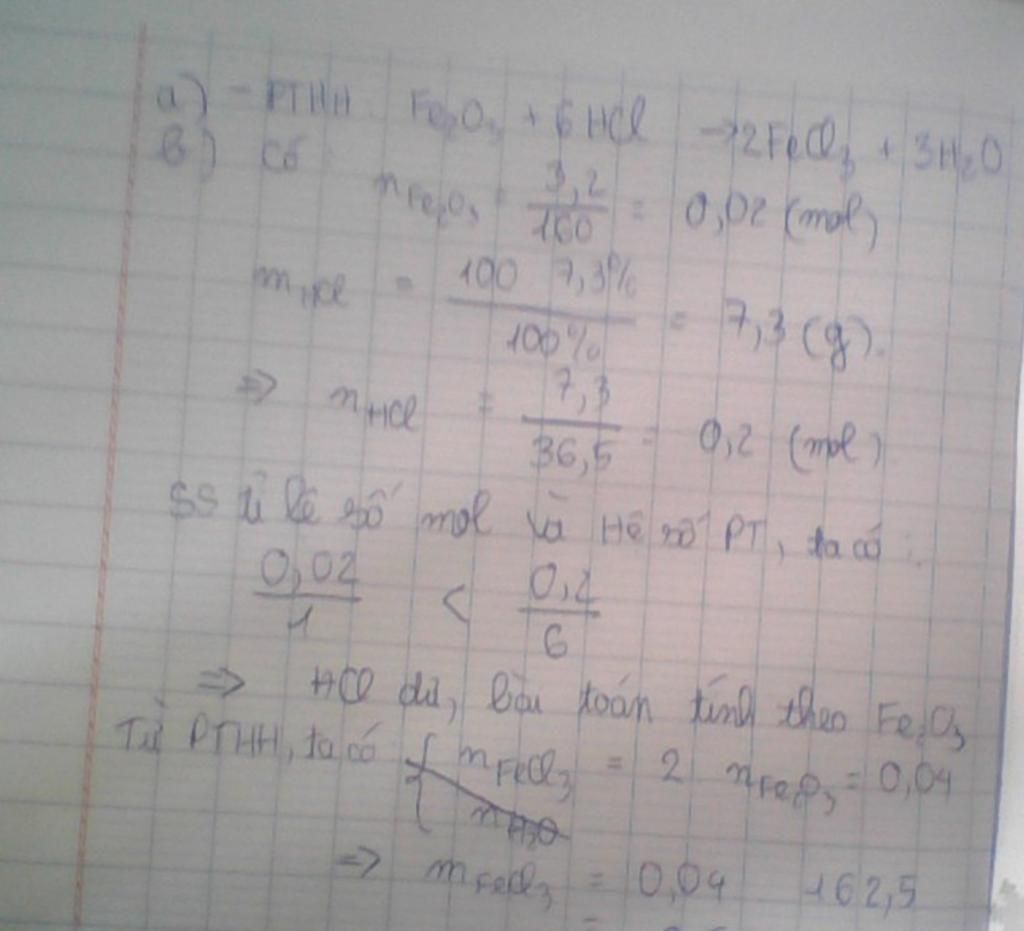 a) - PTHH Fe₂O₃ + 6 HCl → 2FeCl₃ + 3H₂O
b) Có n_Fe₂O₃ = 3,2/160 = 0,02 (mol)
m_HCl = 100 7,3%/100% = 7,3 (g).
=> n_HCl = 7,3/36,5 = 0,2 (mol)
SS tỉ lệ số mol và Hệ số PT, ta có:
0,02/1 < 0,2/6
=> HCl dư, bài toán tính theo Fe₂O₃
Từ PTHH, ta có { n_FeCl₃ = 2 n_Fe₂O₃ = 0,04
=> m_FeCl₃ = 0,04 162,5
=